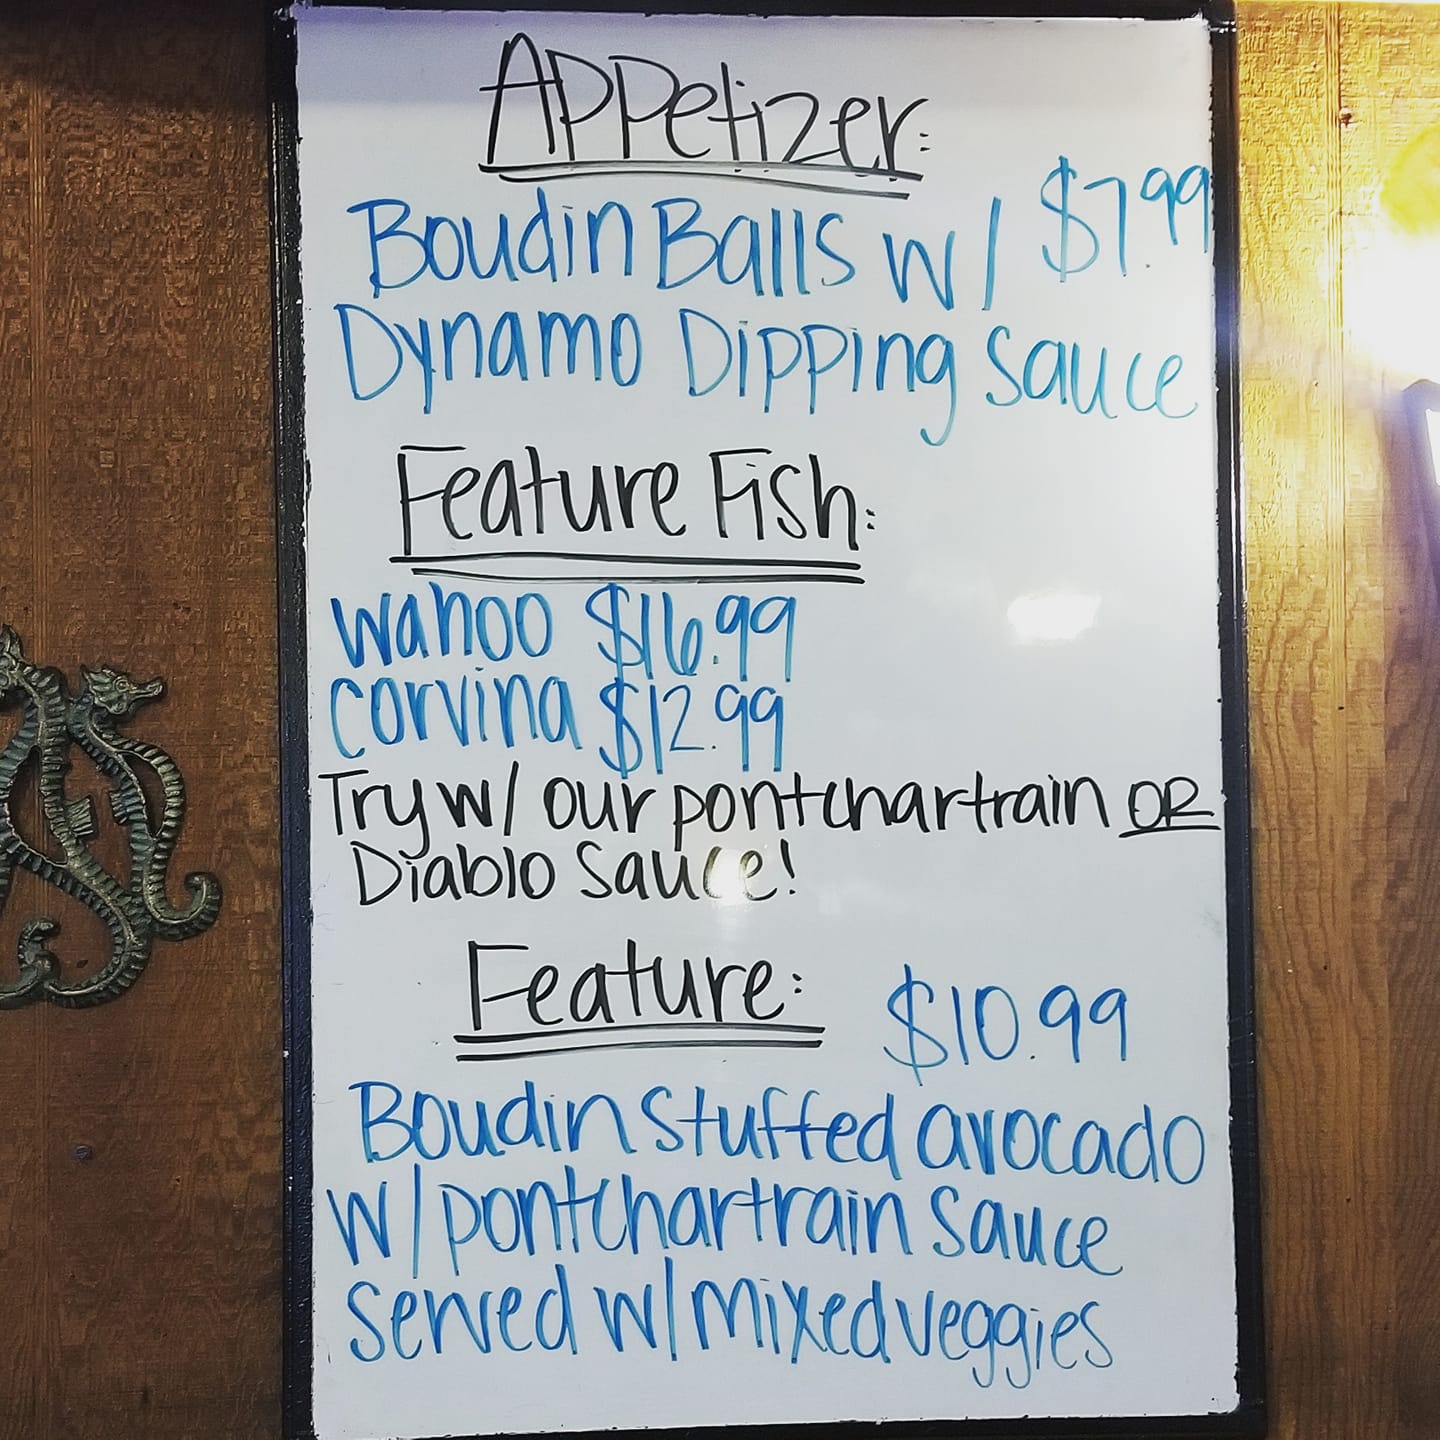 Appetizer:
Boudin Balls w/ $7.99
Dynamo Dipping Sauce
Feature Fish:
Wahoo $16.99
Corvina $12.99
Try w/ our pontchartrain OR
Diablo Sauce!
Feature:
$10.99
Boudin Stuffed avocado
w/ pontchartrain Sauce
Served w/ mixed veggies